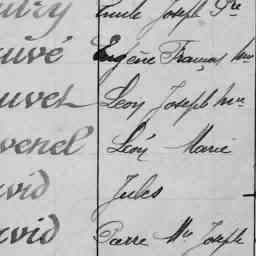 Emile Joseph Pre
uvé Eugène François Mie
uvet Léon Joseph Mie
venel Léon Marie
vid Jules
vid Pierre Mie Joseph